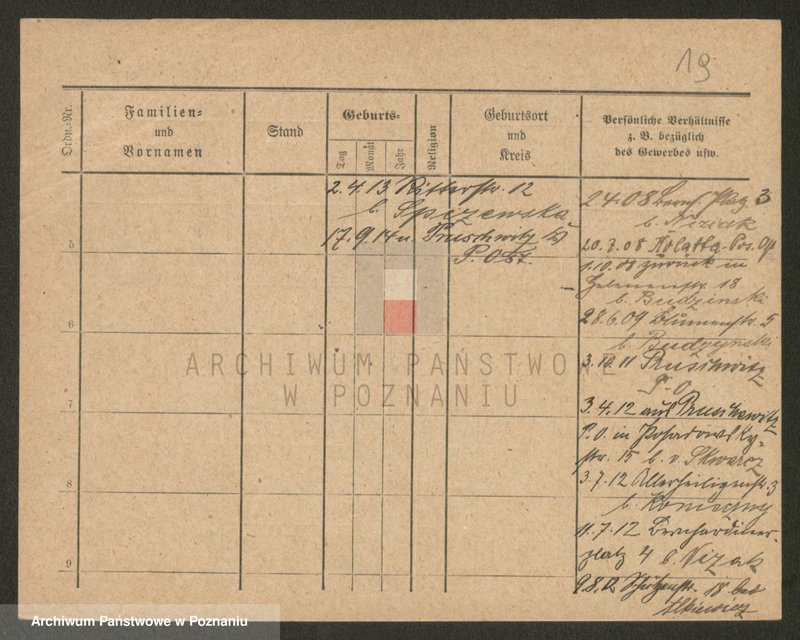 19
Ordn.-Nr.
Familien-
und
Vornamen
Stand
Geburts-
Tag
Monat
Jahr
Religion
Geburtsort
und
Kreis
Persönliche Verhältnisse
z. B. bezüglich
des Gewerbes usw.
2.4.13 Ritterstr. 12
b. Spizewska
17.9.14 n. Pruschwitz
P. Ost.
5
6
7
8
9
2.4.08 Bernh. Platz 3
b. Niziak
20.8.08 Kolatta
1.10.08 zurück in
18
b. Budzinski
28.6.09 Blumenstr. 5
b. Budzynski
3.10.11 Pruschwitz
P. O.
3.4.12 aus Pruschewitz
P.O. in Posadowsky-
str. 15 b. v. Skwarcz
3.7.12 Allerheiligenstr. 3
b.
11.7.12 Bernhardiner-
platz 4 b. Nizak
9.8.12 Schützenstr. 18 bei
Ilkiewicz
ARCHIWUM PAŃSTWOWE
W POZNANIU
Archiwum Państwowe w Poznaniu